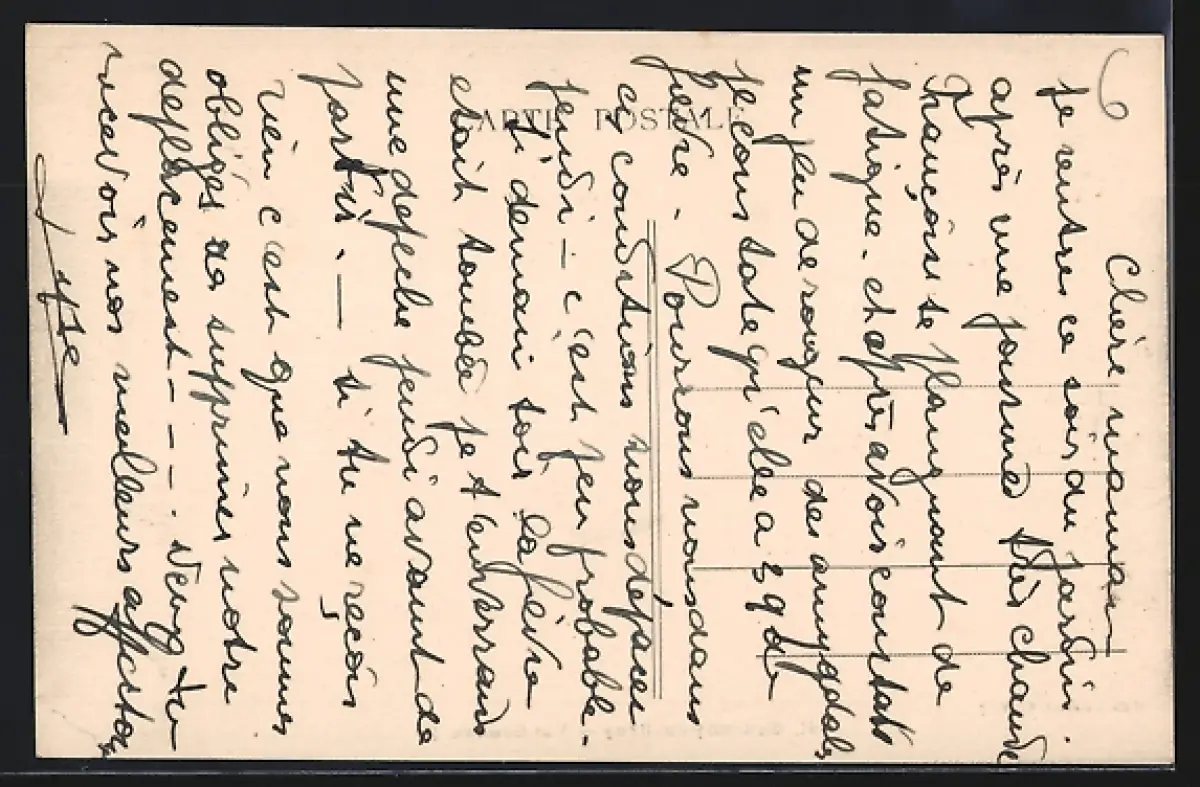 Chère maman
Je rentre ce soir du jardin.
après une journée très chaude
François se plaignant de
fatigue. et après avoir constaté
un peu de rougeur des amygdales
je constate qu'elle a 39 de
fièvre. Pourrons nous dans
ces conditions nous déplacer
jeudi — c'est peu probable.
Si demain soir la fièvre
était tombée je t'enverrais
une depeche jeudi avant de
partir. — si tu ne reçois
rien c'est que nous sommes
obligés de supprimer notre
deplacement - - - . Veux tu
recevoir nos meilleurs
CARTE POSTALE